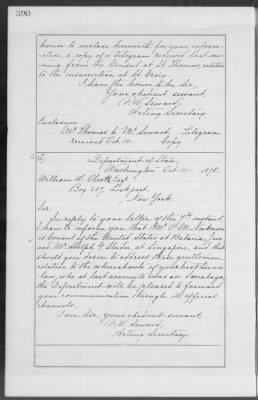 590
honor to enclose herewith for your inform-
ation, a copy of a telegram received last eve-
ning from the Consul at St. Thomas, relative
to the insurrection at St. Croix.
I have the honor to be, Sir,
Your obedient servant,
F. W. Seward,
Acting Secretary.
Enclosure:
Mr. Thomas to Mr. Seward, Telegram
received Oct. 10. Copy
Department of State,
Washington Oct. 11 1878.
William W. Esq.
Box 227, Lockport,
New York.
Sir:
In reply to your letter of the 7th instant,
I have to inform you that Mr. P. M.
is Consul of the United States at Batavia, Java
and Mr. Adolph G. Studer at Singapore, and that
should you desire to address these gentlemen
relative to the whereabouts of your brother in
law, who at last accounts was on
the Department will be pleased to forward
your communication through its official
channels.
I am, Sir, your obedient servant,
F. W. Seward,
Acting Secretary.